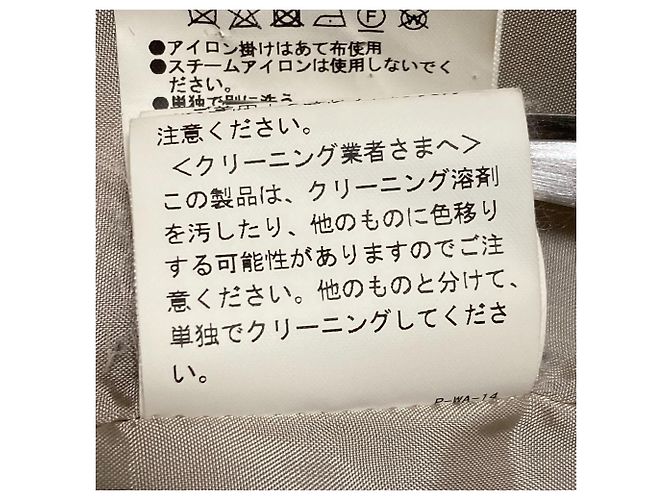 ●アイロン掛けはあて布使用
●スチームアイロンは使用しないでく
ださい。
●単独で別に洗う
注意ください。
＜クリーニング業者さまへ＞
この製品は、クリーニング溶剤
を汚したり、他のものに色移り
する可能性がありますのでご注
意ください。他のものと分けて、
単独でクリーニングしてくださ
い。
P-WA-14